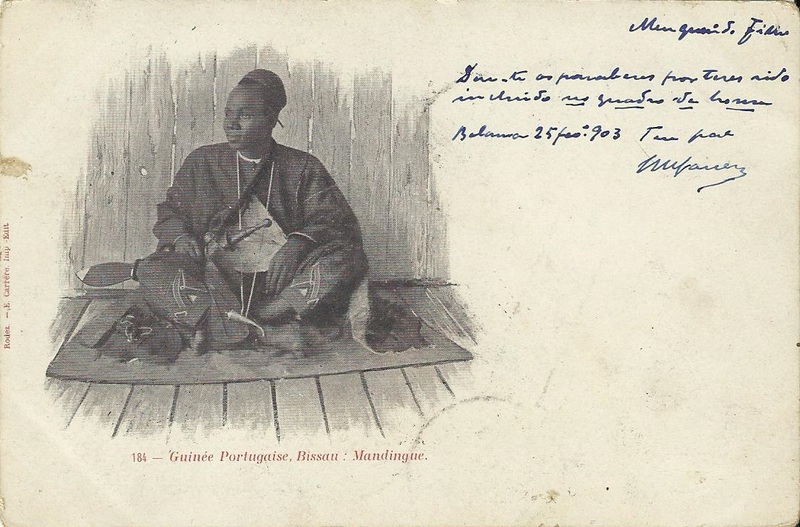 Meu querido Filho
Dou-te os parabens por teres sido
incluido no quadro de honra
Bolama 25 fev.º 903 Teu pae
184 — Guinée Portugaise, Bissau : Mandingue.
Rodez. — E. Carrère. Imp.-Edit.